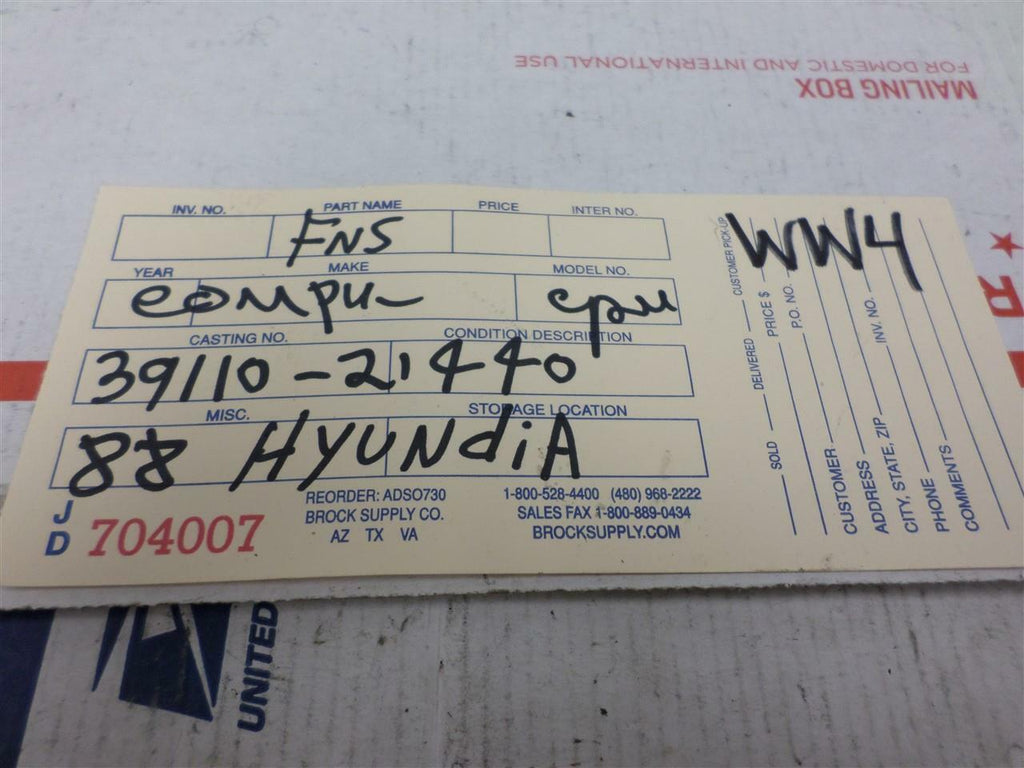 FOR DOMESTIC AND INTERNATIONAL USE
MAILING BOX
INV. NO. PART NAME PRICE INTER NO.
FNS
YEAR MAKE MODEL NO.
COMPU- CPU
CASTING NO. CONDITION DESCRIPTION
39110-21440
MISC. STORAGE LOCATION
88 HYUNDiA
JD 704007
REORDER: ADSO730
BROCK SUPPLY CO.
AZ TX VA
1-800-528-4400 (480) 968-2222
SALES FAX 1-800-889-0434
BROCKSUPPLY.COM
WW4
SOLD DELIVERED CUSTOMER PICK-UP
PRICE $
P.O. NO.
CUSTOMER INV. NO.
ADDRESS
CITY, STATE, ZIP
PHONE
COMMENTS
R
UNITED